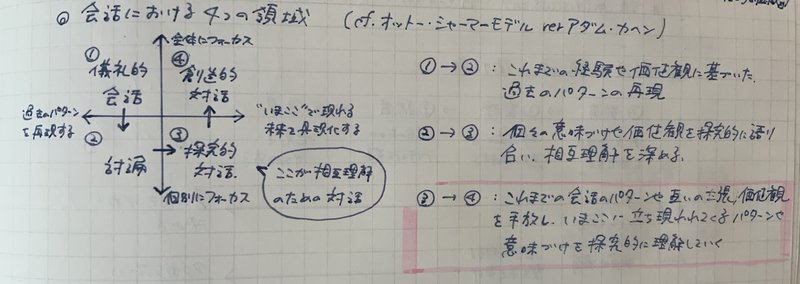 ◎ 会話における4つの領域 (cf. オットー・シャーマーモデル ver アダム・カヘン)
全体にフォーカス
① 儀礼的会話
④ 創造的対話
過去のパターンを再現する
"いまここ"で現れる様を具現化する
② 討論
③ 探究的対話
個別にフォーカス
ここが相互理解
のための対話
①→②：これまでの経験や価値観に基いた、
過去のパターンの再現
②→③：個々の意味づけや価値観を探究的に語り
合い、相互理解を深める。
③→④：これまでの会話のパターンや互いの主張、価値観
を手放し、いまここに立ち現われてくるパターンや
意味づけを探究的に理解していく